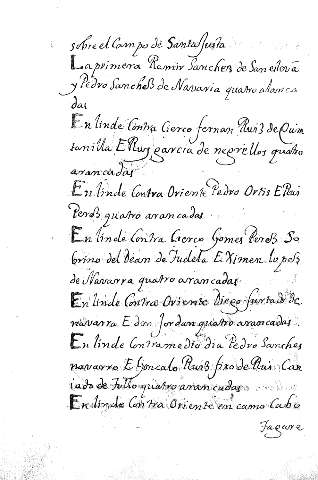 sobre el Campo de Santa Justa
La primera Ramir Sanches de San estevā
y Pedro Sanches de Navarra quatro aranca
das
En linde Contra Cierco fernan Ruis de Quin
tanilla E Ruy garcia de negrellos quatro
arancadas
En linde Contra Oriente Pedro Ortis E Rui
Peres quatro arancadas
En linde Contra Cierco Gomes Peres So
brino del Dean de Tudela E Ximen lopes
de Navarra quatro arancadas
En linde Contra Oriente Diego furtado de
navarra E don Jordan quatro arancadas
En linde Contra medio dia Pedro Sanches
navarro E Goncalo Ruis fixo de Rui
quatro arancadas
En linde Contra Oriente en camo Cabo